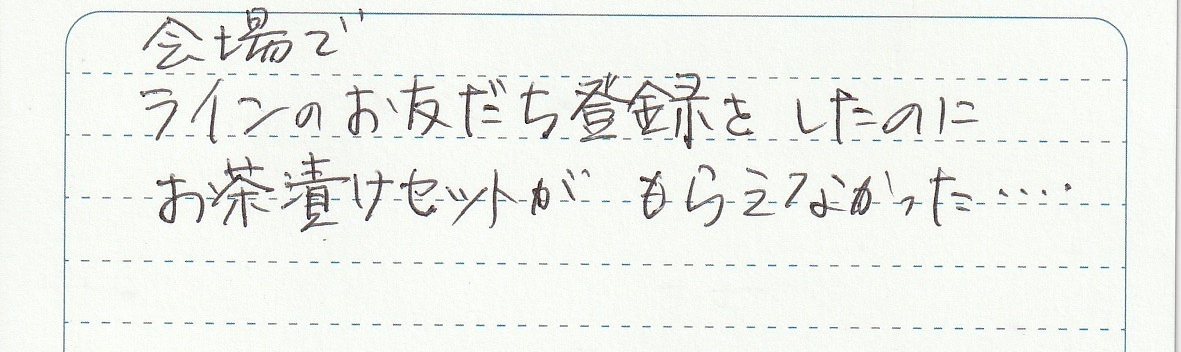 会場で
ラインのお友だち登録をしたのに
お茶漬けセットがもらえなかった‥‥